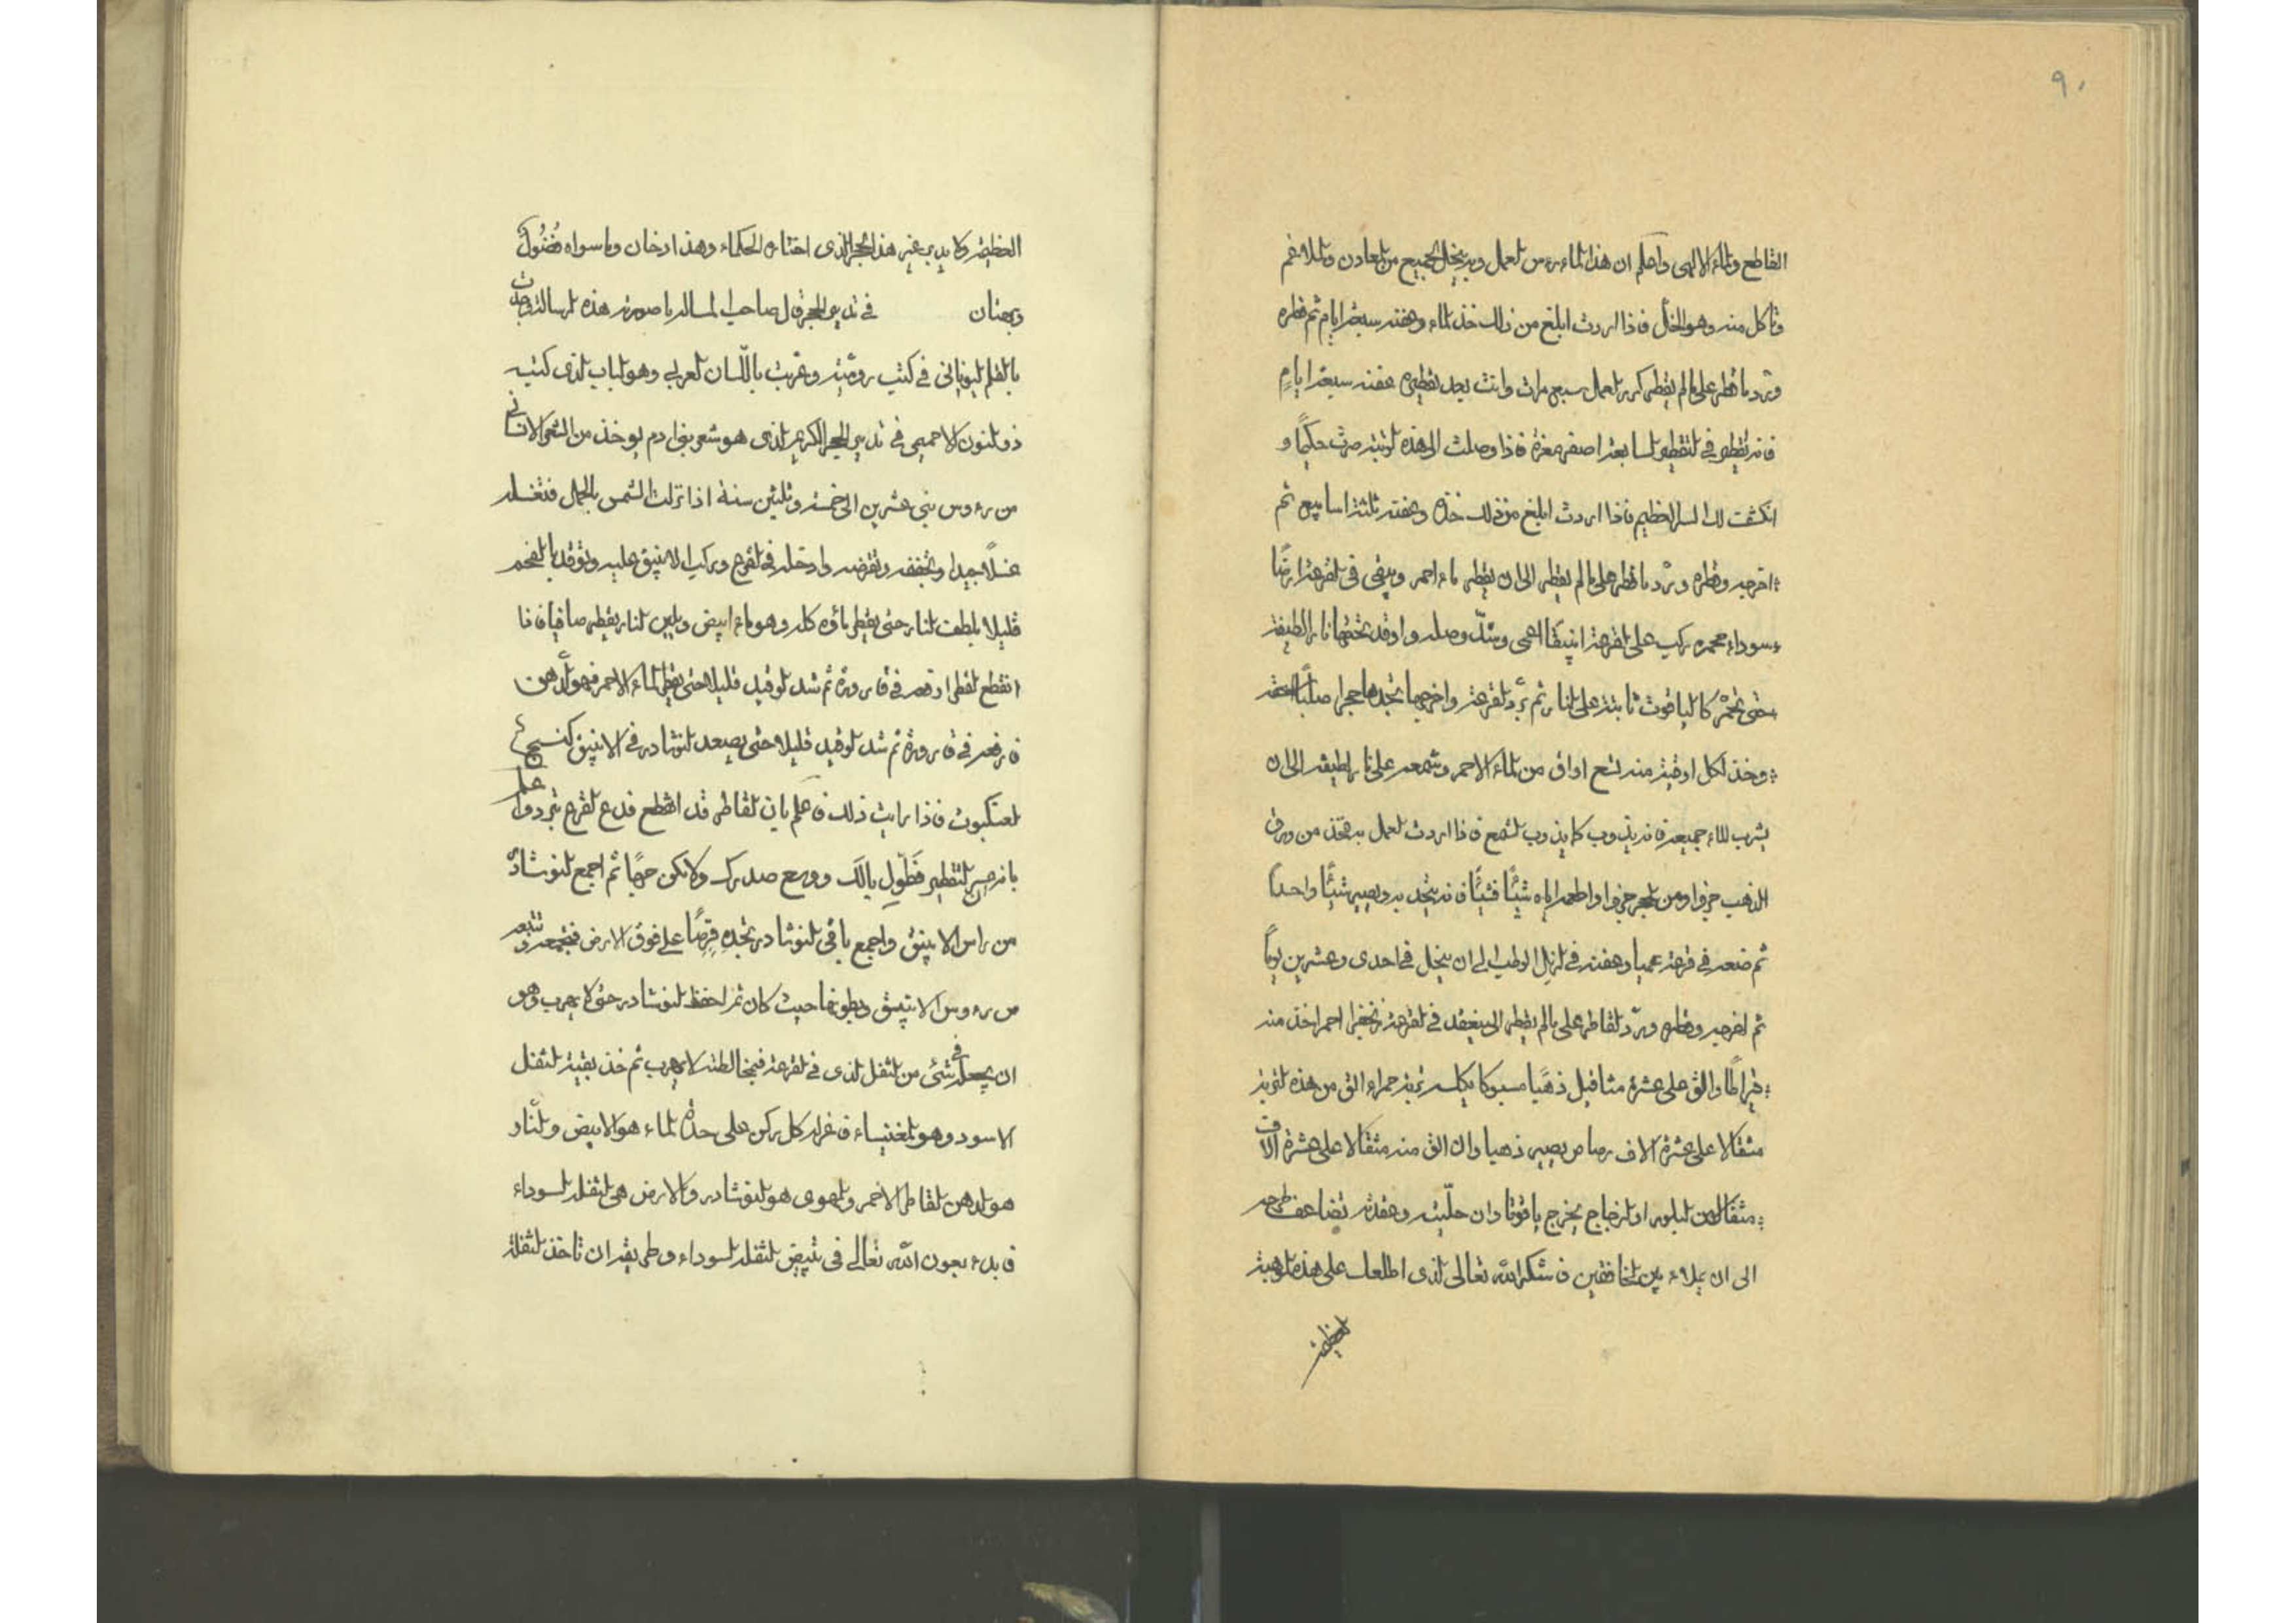 ٩٠
القاطع والماء الالهى واعلم ان هذا الماء روس لعمل وبه ينحل الجميع من المعادن والملاغم
وتاكل منه وهو الخل فاذا اردت ابلغ من ذلك خذ الماء وعفنه سبعة ايام ثم قطره
وترد ما قطر على ما لم يقطر كرر العمل سبع مرات وانت بعد تقطيره عفنه سبعة ايام
فانه يقطر فى التقطير السابعة اصفر فاذا وصلت الى هذه الرتبة صرت حكيمًا و
انكشفت لك السر العظيم فاذا اردت ابلغ من ذلك خذه وعفنه ثلثة اسابيع ثم
اخرجه وقطره وترد ما قطر على ما لم يقطر الى ان يقطر ماء احمر ويبقى فى القرعة ارضًا
سوداء محمره ركب على القرعة انبيقًا اعمى وشد وصله واوقد تحتها نارا لطيفة
حتى تحمر كالياقوت ثابتة على النار ثم برد القرعة واخرجها تجدها حجرا صلبًا
وخذ لكل اوقية منه تسع اواق من الماء الاحمر وشمعه على نار لطيفه الى ان
يشرب الماء جميعه فانه يذوب كما يذوب الشمع فاذا اردت العمل به فخذ من ورق
الذهب جزوا ومن الحجر جزوا واطعمه اياه شيئًا فشيئًا فانه يتحد به ويصير شيئًا واحدًا
ثم ضعه فى قرعة عميا وعفنه فى الزبل الرطب الى ان ينحل فى احدى وعشرين يومًا
ثم اخرجه وقطره وترد القاطر على ما لم يقطر الى ينعقد فى القرعة زنجفرا احمرا خذ منه
قيراطًا والق على عشرة مثاقيل ذهبًا مسبوكا يكلسه تربة حمراء الق من هذه التربة
مثقالا على عشرة الاف رصاص يصير ذهبا وان الق منه مثقالا على عشرة الاف
مثقال من البلور او الزجاج يخرج ياقوتا وان حليته وعقدته تضاعف طرحه
الى ان يملاء بين الخافقين فاشكر الله تعالى الذى اطلعك على هذه الموهبة
العظيمة
العظيمة ولا يدبر غير هذا الحجر الذى اختاره الحكماء وهذا دخان وما سواه فضول
وبهتان فى تدبير الحجر قال صاحب الرسالة ما صورته هذه الرسالة وجدت
بالقلم اليونانى فى كتب رومية وعربت باللسان العربى وهو الباب الذى كتبه
ذو النون الاخميمى فى تدبير الحجر الكريم الذى هو شعر بنى ادم يوخذ من الشعر الانسانى
من رءوس بنى عشرين الى خمسة وثلثين سنة اذا نزلت الشمس بالحمل فتغسله
غسلًا جيدا وتجففه وتقرضه وادخله فى القرع وركب الانبيق عليه وتوقد بالفحم
قليلا بلطف النار حتى يقطر ماؤه كله وهو ماء ابيض وبلين النار يقطر صافيا فاذا
انقطع القطر ارفعه فى قارورة ثم شد الوقيد قليلا حتى يقطر الماء الاحمر فهو الدهن
فارفعه فى قارورة ثم شد الوقيد قليلا حتى يصعد النوشادر فى الانبيق كنسج
العنكبوت فاذا رايت ذلك فاعلم بان القاطر قد انقطع فدع القرع تبرد واعلم
بانه جسر التقطير فطول بالك ووسع صدرك ولا تكن ثم اجمع النوشادر
من راس الانبيق واجمع باقى النوشادر تجده قرصًا على فوق الارض فتجمعه وتتبعه
من رءوس الانبيق وبطونها حيث كان ثم احفظ النوشادر حتى لا يهرب وهو
ان يجعل فى شئ من الثفل الذى فى القرعة فبمخالطته لا يهرب ثم خذ بقية الثفل
الاسود وهو المغنيسياء فاعزل كل ركن على حدة الماء هو الابيض والنار
هو الدهن القاطر الاحمر والهوى هو النوشادر والارض هى الثفلة السوداء
فابدء بعون الله تعالى فى تبييض الثفله السوداء وطريقه ان تاخذ الثفلة